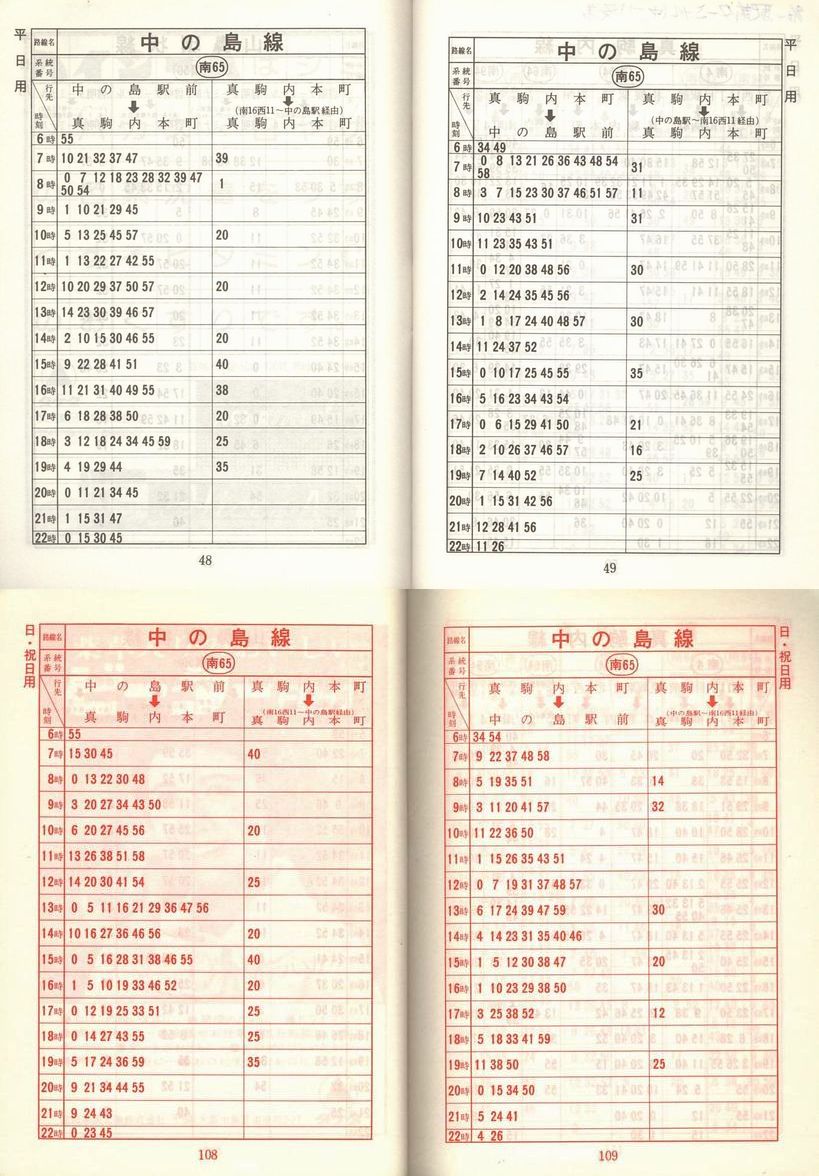 平日用
路線名 中の島線
系統番号 南65
行先 時刻
中の島駅前
⬇
真駒内本町
真駒内本町
⬇
(南16西11〜中の島駅経由)
真駒内本町
6時 55
7時 10 21 32 37 47 39
8時 0 7 12 18 23 28 32 39 47
50 54 1
9時 1 10 21 29 45
10時 5 13 25 45 57 20
11時 1 13 22 27 42 55
12時 10 20 29 37 50 57 20
13時 14 23 30 39 46 57
14時 2 10 15 30 46 55 20
15時 9 22 28 41 51 40
16時 11 21 31 40 49 55 38
17時 6 18 28 38 50 20
18時 3 12 18 24 34 45 59 25
19時 4 19 29 44 35
20時 0 11 21 34 45
21時 1 15 31 47
22時 0 15 30 45
48
平日用
路線名 中の島線
系統番号 南65
行先 時刻
真駒内本町
⬇
中の島駅前
真駒内本町
⬇
(中の島駅〜南16西11経由)
真駒内本町
6時 34 49
7時 0 8 13 21 26 36 43 48 54
58 31
8時 3 7 15 23 30 37 46 51 57 11
9時 10 23 43 51 31
10時 11 23 35 43 51
11時 0 12 20 38 48 56 30
12時 2 14 24 35 45 56
13時 1 8 17 24 40 48 57 30
14時 11 24 37 52
15時 0 10 17 25 45 55 35
16時 5 16 23 34 43 54
17時 0 6 15 29 41 50 21
18時 2 10 26 37 46 57 16
19時 7 14 40 52 25
20時 1 15 31 42 56
21時 12 28 41 56
22時 11 26
49
日・祝日用
路線名 中の島線
系統番号 南65
行先 時刻
中の島駅前
⬇
真駒内本町
真駒内本町
⬇
(南16西11〜中の島駅経由)
真駒内本町
6時 55
7時 15 30 45 40
8時 0 13 22 30 48
9時 3 20 27 34 43 50
10時 6 20 27 45 56 20
11時 13 26 38 51 58
12時 14 20 30 41 54 25
13時 0 5 11 16 21 29 36 47 56
14時 10 16 27 36 46 56 20
15時 0 5 16 28 31 38 46 55 40
16時 1 5 10 19 33 46 52 20
17時 0 12 19 25 33 51 25
18時 0 14 27 43 55 25
19時 5 17 24 36 59 35
20時 9 21 34 44 55
21時 9 24 43
22時 0 23 45
108
日・祝日用
路線名 中の島線
系統番号 南65
行先 時刻
真駒内本町
⬇
中の島駅前
真駒内本町
⬇
(中の島駅〜南16西11経由)
真駒内本町
6時 34 54
7時 9 22 37 48 58
8時 5 19 35 51 14
9時 3 11 20 41 57 32
10時 11 22 36 50
11時 1 15 26 35 43 51
12時 0 7 19 31 37 48 57
13時 6 17 24 39 47 59 30
14時 4 14 23 31 35 40 46
15時 1 5 12 30 38 47 20
16時 1 10 23 29 38 50
17時 3 25 38 52 12
18時 5 18 33 41 59
19時 11 38 50 25
20時 0 15 34 50
21時 5 24 41
22時 4 26
109